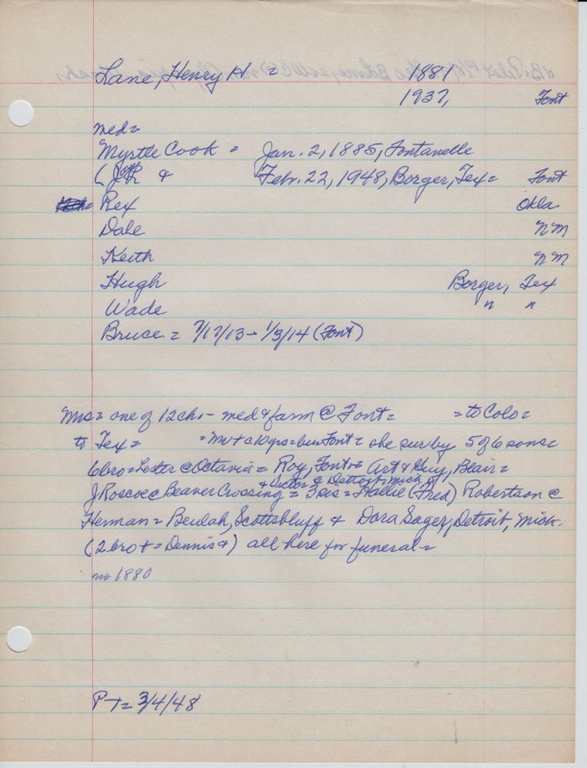 Lane, Henry H. = 1881
1937, Font
med=
Myrtle Cook = Jan. 2, 1885, Fontanelle
( & Feb. 22, 1948, Borger, Tex= Font
Rex Okla
Dale NM
Keith NM
Hugh Borger, Tex
Wade " "
Bruce = 7/17/13 - 1/3/14 (Font)
Mrs= one of 12ch.- med & farm @ Font= =to Colo=
to Tex= = she sur by 5 of 6 sons=
6bro=Lester @ Octavia = Roy, Font= Art & Guy, Blair=
& Victor @ Detroit, Mich
J Roscoe @ Beaver Crossing = 3 sis = Hallie (Fred) Robertson @
Herman = Beulah, Scottsbluff & Dora Sager, Detroit, Mich.
(2bro+=Dennis & ) all here for funeral=
1880
P-T= 3/4/48